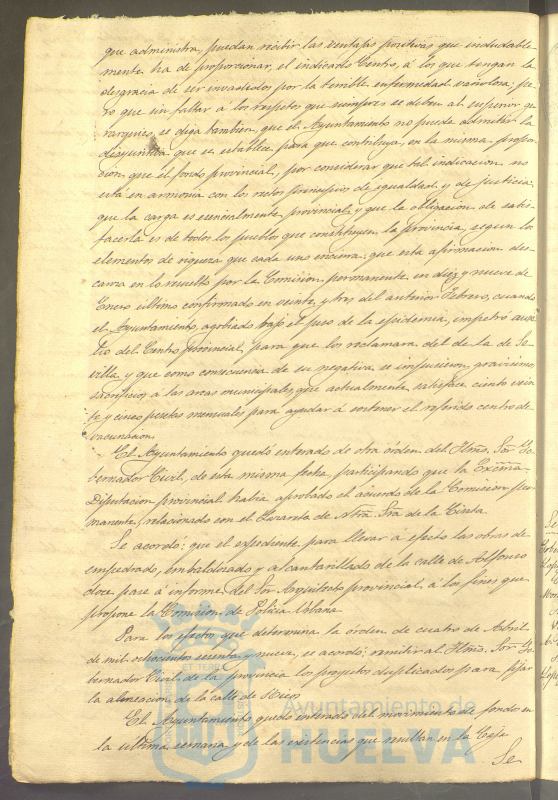 que administra, puedan recibir las ventajas positivas que indudable
mente ha de proporcionar, el indicado Centro, á los que tengan la
desgracia de ser invadidos por la terrible enfermedad variolosa; pe
ro que sin faltar á los respetos que siempre se deben al superior ge
rarquico, se diga tambien, que el Ayuntamiento no puede admitir la
disyuntiva que se establece para que contribuya, en la misma propor
cion que el fondo provincial, por considerar que tal indicacion no
está en armonia con los rectos principios de igualdad y de justicia,
que la carga es esencialmente provincial, y que la obligacion de satis
facerla es de todos los pueblos que constituyen la provincia, segun los
elementos de riqueza que cada uno encierra; que esta afirmacion des
canza en lo resuelto por la Comision permanente, en diez y nueve de
Enero ultimo confirmado en veinte y tres del anterior Febrero, cuando
el Ayuntamiento, agobiado bajo el peso de la epidemia, impetró auxi
lio del Centro provincial, para que los reclamara del de la de Se
villa, y que como consecuencia de su negativa se impusieron gravisimos
sacrificios á las arcas municipales, que actualmente satisface ciento vein
te y cinco pesetas mensuales para ayudar á sostener el referido centro de
vacunacion.
El Ayuntamiento quedó enterado de otra órden del Iltmo. Sor. Go
bernador Civil, de esta misma fecha, participando que la Excma.
Diputacion provincial habia aprobado el acuerdo de la Comision per
manente, relacionado con el Lazareto de Ntra. Sra. de la Cinta.
Se acordó: que el expediente para llevar á efecto las obras de
empedrado, embaldosado y alcantarillado de la calle de Alfonso
doce pase á informe del Sor. Arquitecto provincial, á los fines que
propone la Comision de Policia Urbana.
Para los efectos que determina la órden de cuatro de Abril
de mil ochocientos sesenta y nueve, se acordó: remitir al Iltmo. Sor. Go
bernador Civil de la provincia los proyectos duplicados para fijar
la alineacion de la calle de
El Ayuntamiento quedó enterado del movimiento de fondos en
la ultima semana y de las existencias que resultan en la Caja
Se
Ayuntamiento de
HUELVA